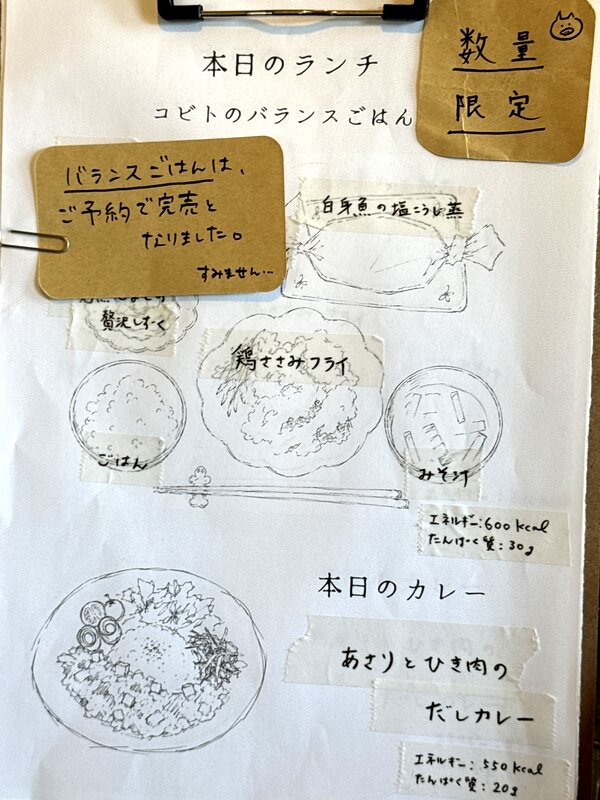 本日のランチ
コビトのバランスごはん
数量
限定
バランスごはんは、
ご予約で完売と
なりました。
すみません…
白身魚の塩こうじ蒸
贅沢しずく
鶏ささみフライ
ごはん
みそ汁
エネルギー:600kcal
たんぱく質:30g
本日のカレー
あさりとひき肉の
だしカレー
エネルギー:550kcal
たんぱく質:20g